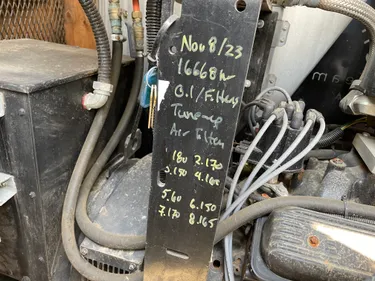 Nov 8/23
16668 hr
O.i/Filters
Tune-up
Air Filter
1.80 2.170
3.150 4.160
5.160 6.150
7.170 8.165